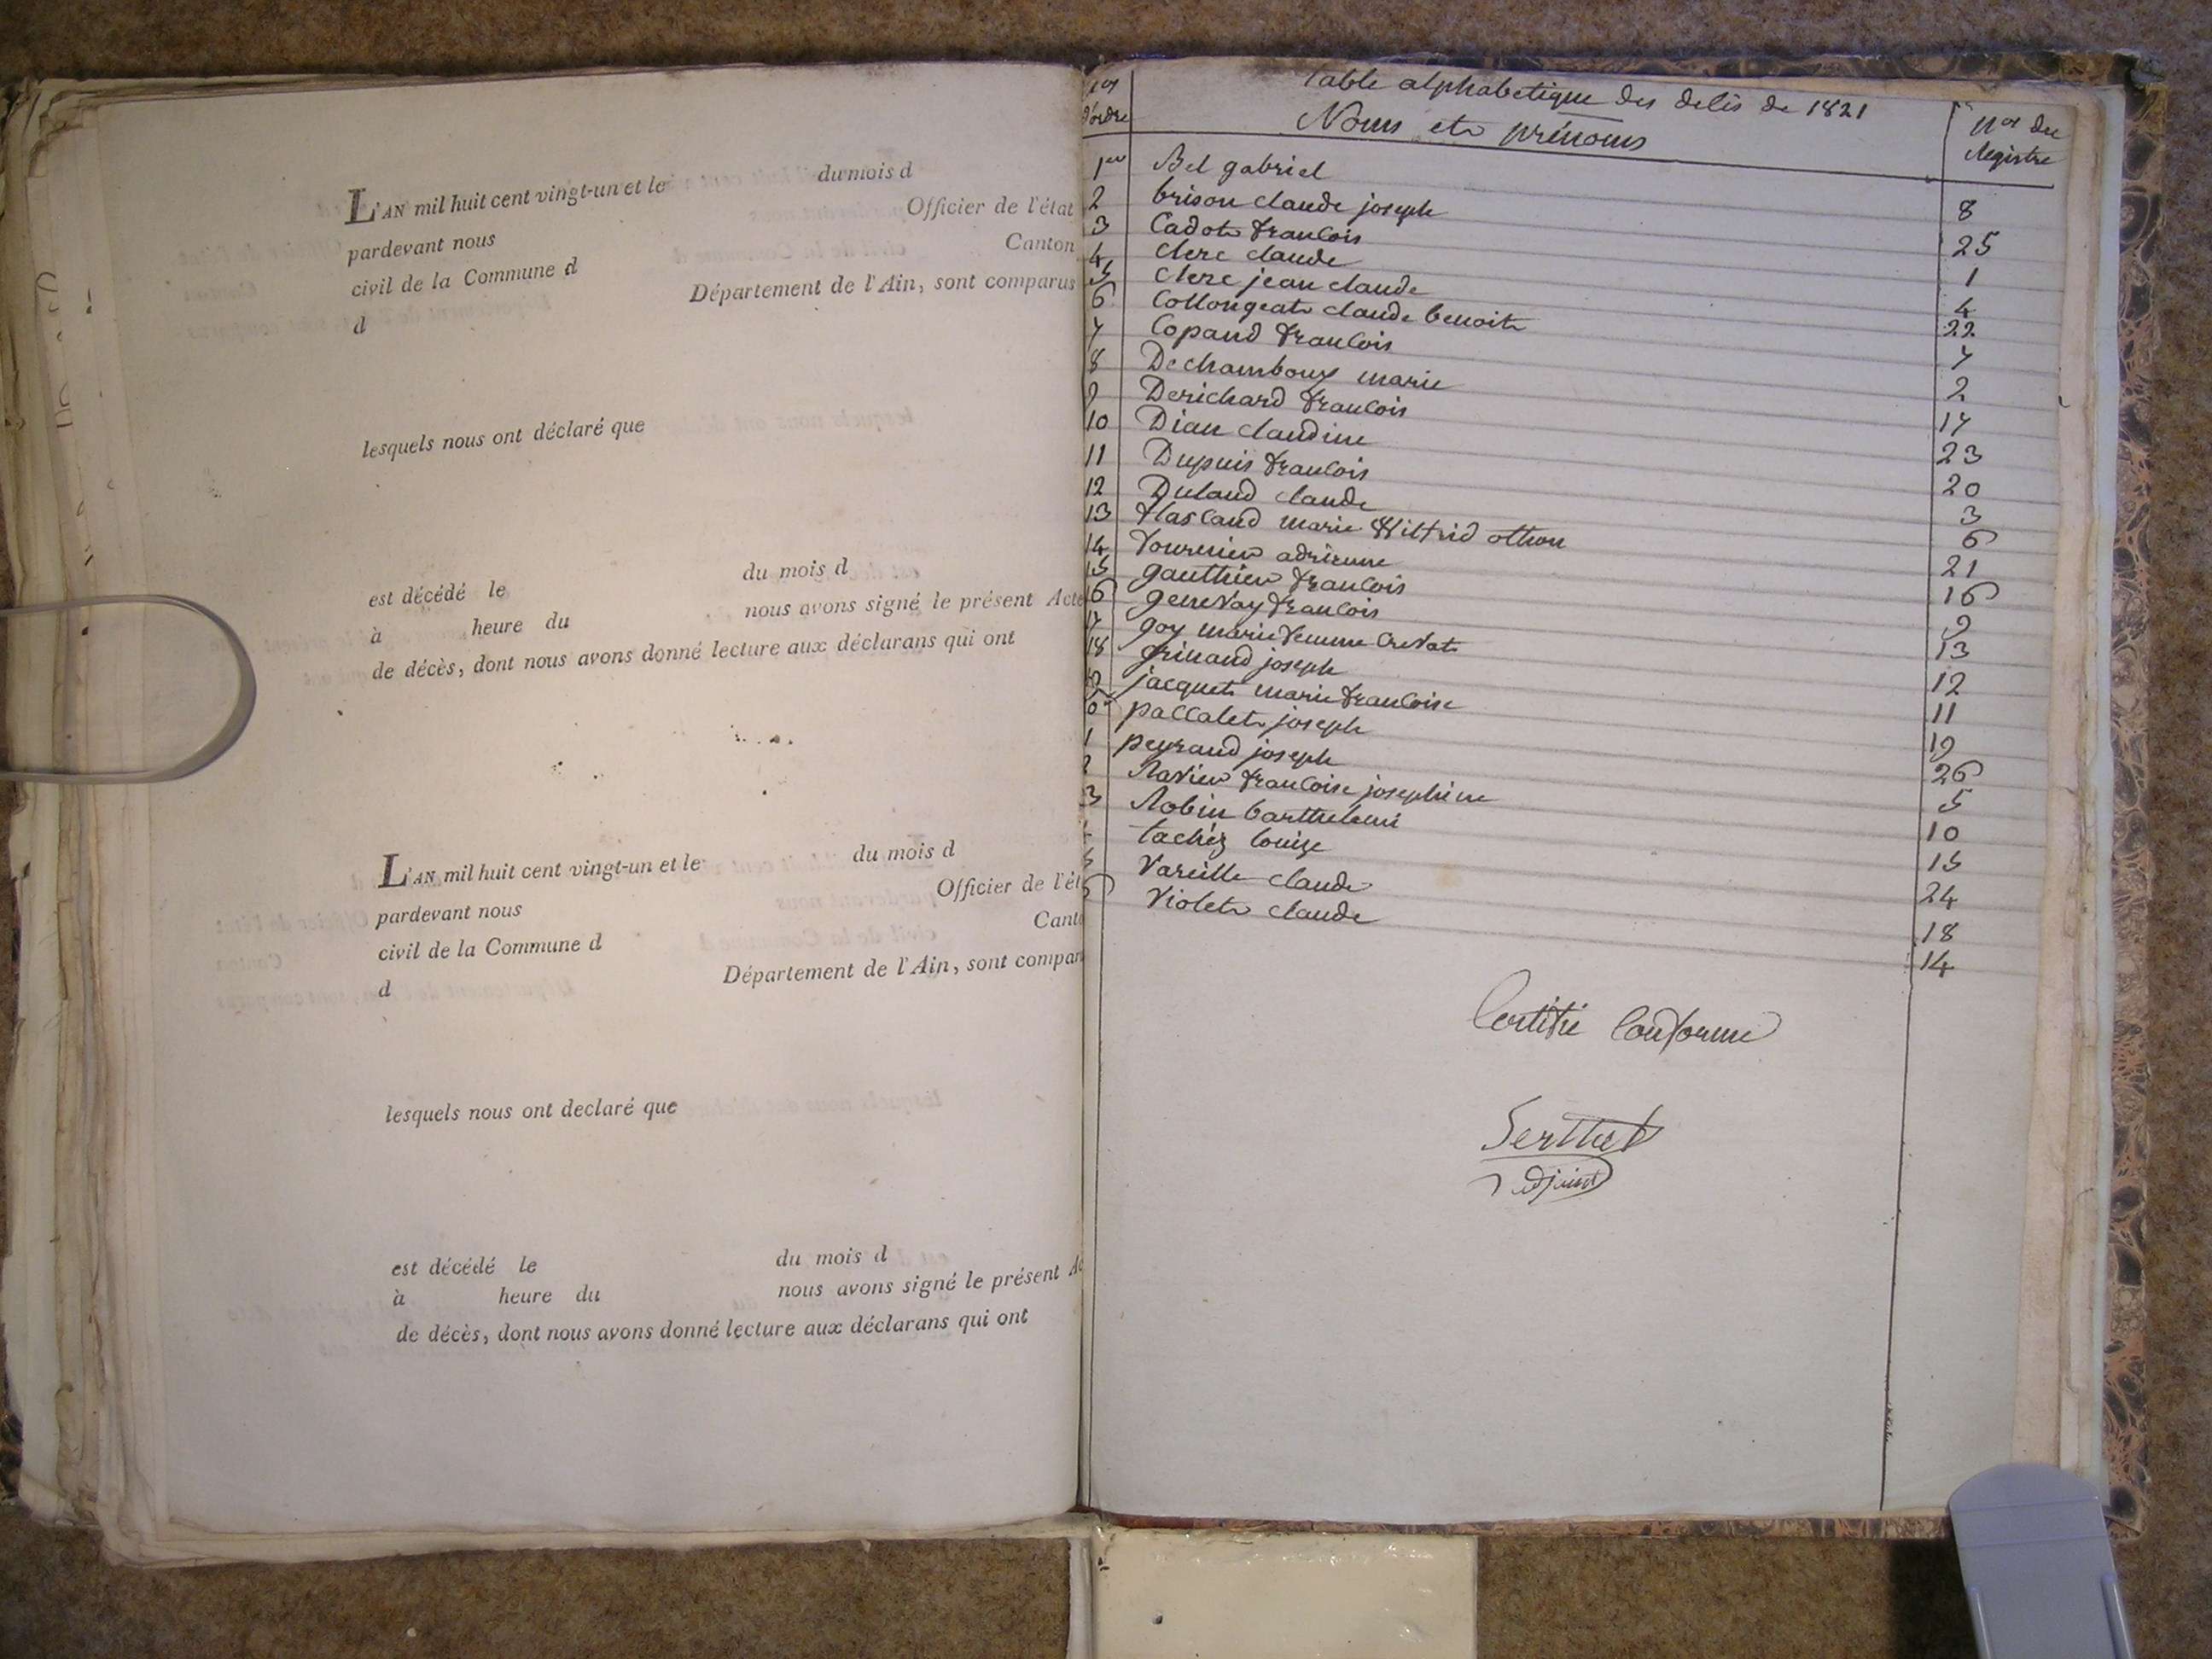 L'AN mil huit cent vingt-un et le du mois d
pardevant nous Officier de l'état
civil de la Commune d Canton
d Département de l'Ain, sont comparus
lesquels nous ont déclaré que
est décédé le du mois d
à heure du nous avons signé le présent Acte
de décès, dont nous avons donné lecture aux déclarans qui ont
L'AN mil huit cent vingt-un et le du mois d
pardevant nous Officier de l'ét
civil de la Commune d Canto
d Département de l'Ain, sont compar
lesquels nous ont declaré que
est décédé le du mois d
à heure du nous avons signé le présent Ac
de décès, dont nous avons donné lecture aux déclarans qui ont
Table alphabetique des de 1821
d'ordre Noms et prénoms nos du Registre
1er Bel gabriel 8
2 brison claude joseph 25
3 Cadot francois 1
4 clerc claude 4
5 clerc jean claude 22
6 Collongeat claude benoit 7
7 Copand francois 2
8 Dechamboux marie 17
9 Derichard francois 23
10 Dian claudine 20
11 Dupuis francois 3
12 Duland claude 6
13 marie Wilfrid othon 21
14 fournier adrienne 16
15 gauthier francois 9
16 genevay francois 13
17 goy marie femme Crevat 12
18 grinand joseph 11
jacquet marie francoise 19
0 pallalet joseph 26
1 peyraud joseph 5
2 Ravier francoise josephine 10
3 Robin barthelemi 15
tachéz louise 24
5 Vareille claude 18
6 Violet claude 14
Certifié Conforme
Serthet
adjoint